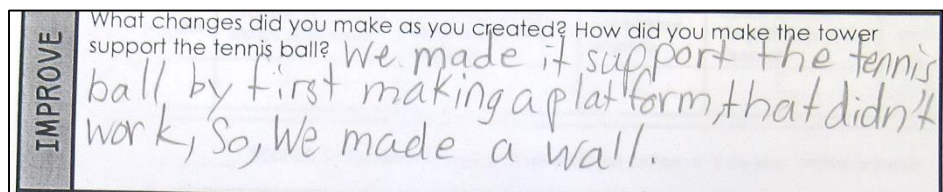 IMPROVE
What changes did you make as you created? How did you make the tower
support the tennis ball? We made it support the tennis
ball by first making a platform, that didn't
work, So, We made a wall.